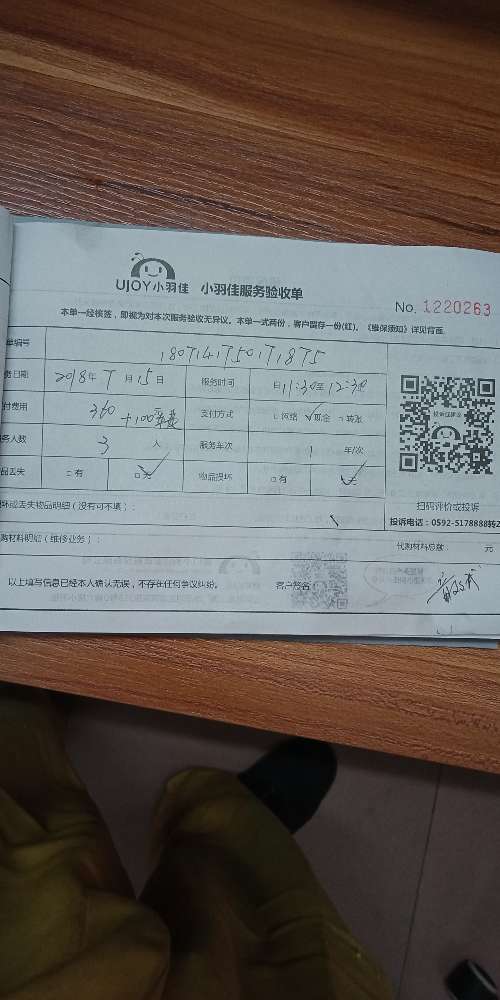 UJOY小羽佳 小羽佳服务验收单
No. 1220263
本单一经核签，即视为对本次服务验收无异议。本单一式两份，客户留存一份(红)。《维保须知》详见背面
单编号 1807141750171875
务日期 2018年7月15日 服务时间 日11:30至12:30
付费用 360+100 支付方式 □网络 ✓现金 □转账
务人数 3 人 服务车次 1 车/次
品丢失 □有 ✓无 物品损坏 □有
扫码评价或投诉
坏或丢失物品明细（没有可不填）：
投诉电话：0592-5178888转2
购材料明细（维修业务）：
代购材料总数： 元
以上填写信息已经本人确认无误，不存在任何争议纠纷。 客户签名：